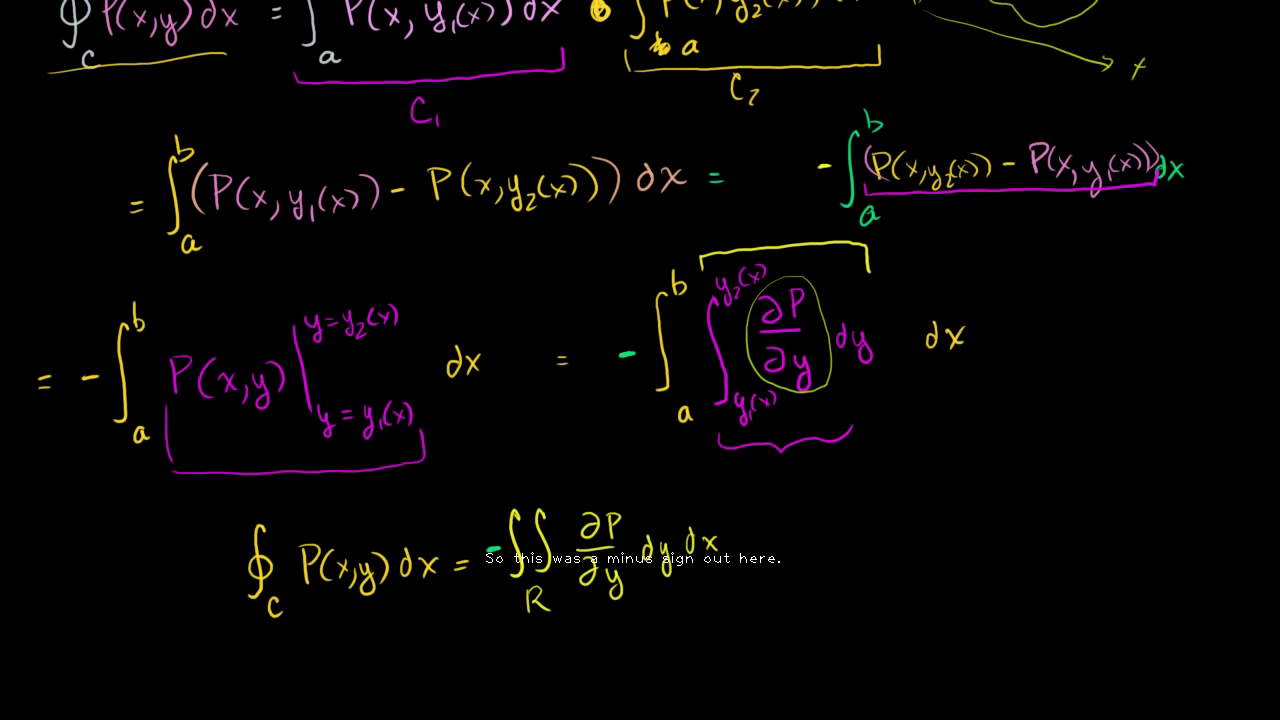 ∮_C P(x,y) dx = ∫_a P(x, y₁(x)) dx ∫_a P(x, y₂(x))
x
C₁ C₂
= ∫_a^b (P(x, y₁(x)) - P(x, y₂(x))) dx = - ∫_a^b (P(x,y₂(x)) - P(x,y₁(x))) dx
= - ∫_a^b P(x,y) |_{y = y₁(x)}^{y = y₂(x)} dx = - ∫_a^b ∫_{y₁(x)}^{y₂(x)} ∂P/∂y dy dx
∮_C P(x,y) dx = - ∬_R ∂P/∂y dy dx
So this was a minus sign out here.